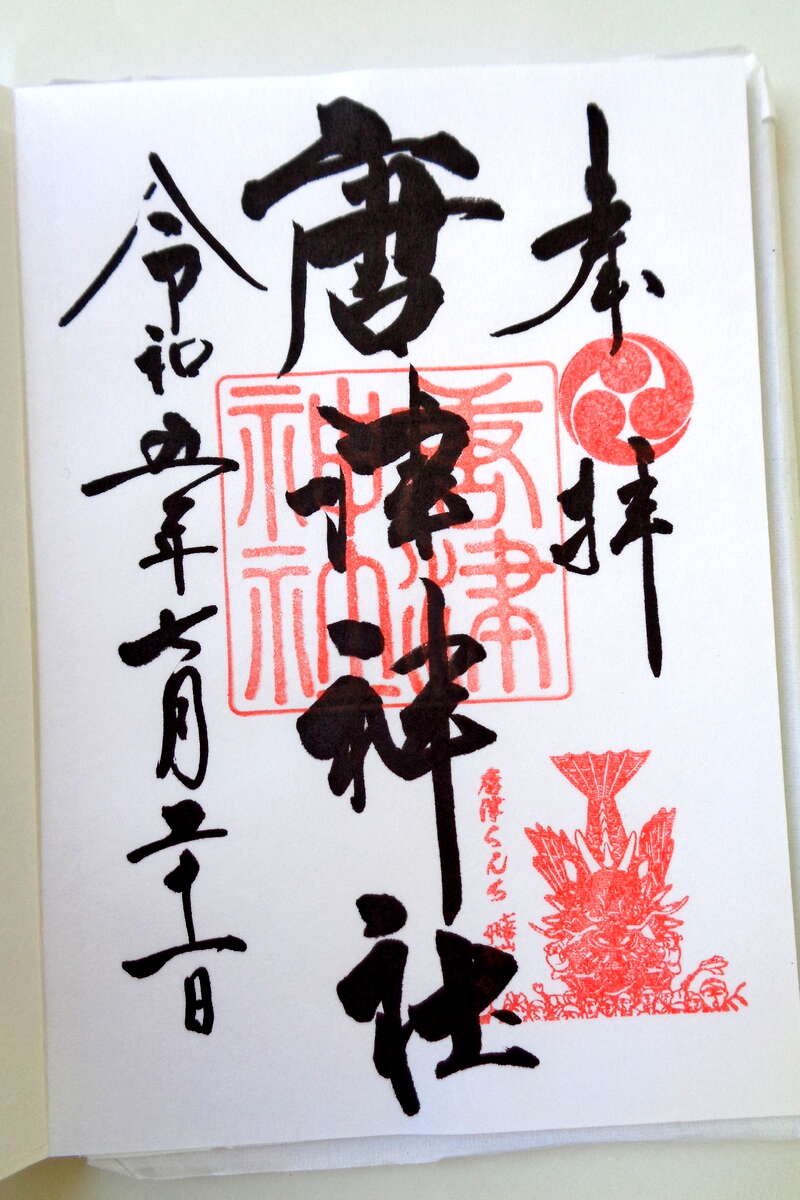 奉拝
唐津神社
唐津神社
唐津くんち
令和五年七月二十一日